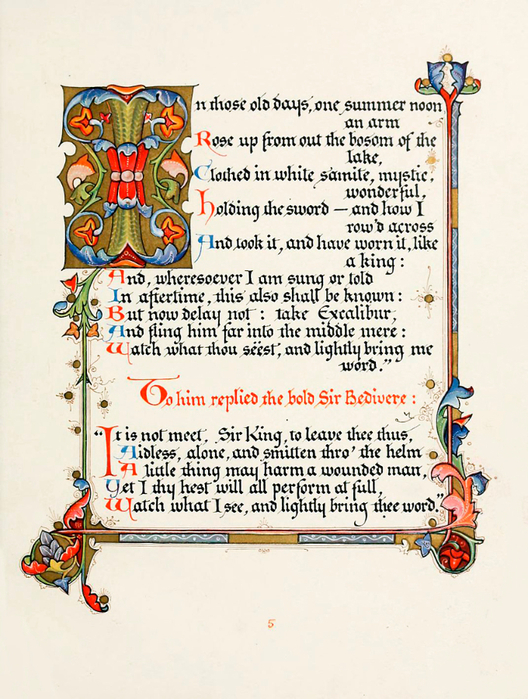 In those old days, one summer noon
an arm
Rose up from out the bosom of the
lake,
Clothed in white samite, mystic,
wonderful,
Holding the sword — and how I
row'd across
And took it, and have worn it, like
a king:
And, wheresoever I am sung or told
In aftertime, this also shall be known:
But now delay not: take Excalibur,
And fling him far into the middle mere:
Watch what thou sëest, and lightly bring me
word."
To him replied the bold Sir Bedivere:
"It is not meet, Sir King, to leave thee thus,
Aidless, alone, and smitten thro' the helm
A little thing may harm a wounded man,
Yet I thy hest will all perform at full,
Watch what I see, and lightly bring thee word."
5